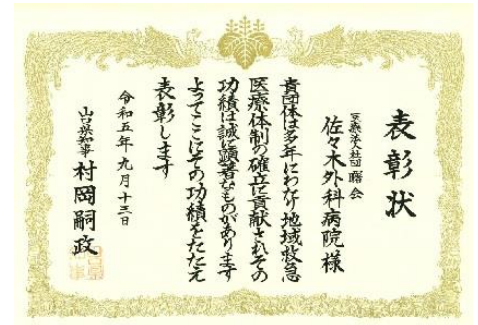 表彰状
医療法人社団 曙会
佐々木外科病院 様
貴団体は多年にわたり地域救急
医療体制の確立に貢献されその
功績は誠に顕著なものがあります
よってここにその功績をたたえ
表彰します
令和五年九月十三日
山口県知事 村岡嗣政